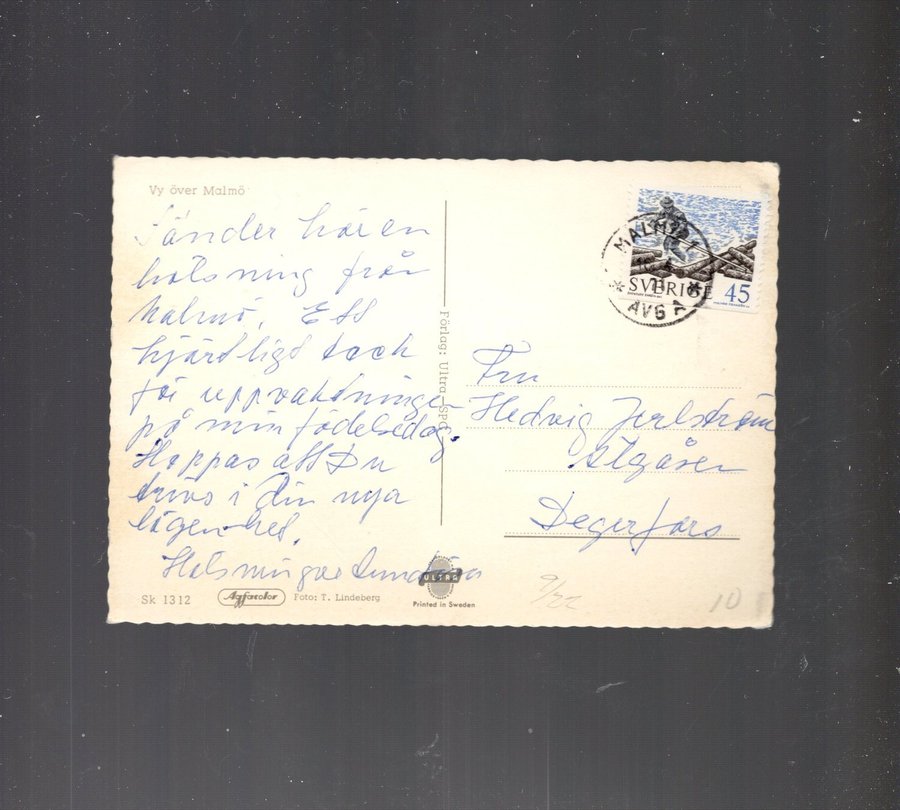 Vy över Malmö
Sänder här en
hälsning från
Malmö. Ett
hjärtligt tack
för uppvaktningen
på min födelsedag.
Hoppas att Du
trivs i din nya
lägenhet.
Hälsningar
Förlag: Ultra
MALMÖ 1
AVG A
SVERIGE 45
Fru
Hedvig Jerlström
Degerfors
Sk 1312
Agfacolor
Foto: T. Lindeberg
ULTRA
Printed in Sweden
9/22
10